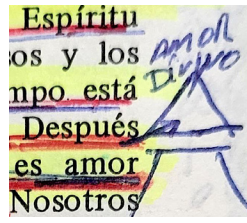 Espíritu
sos y los
mpo está
Después
es amor
Nosotros
AMOR
Divino